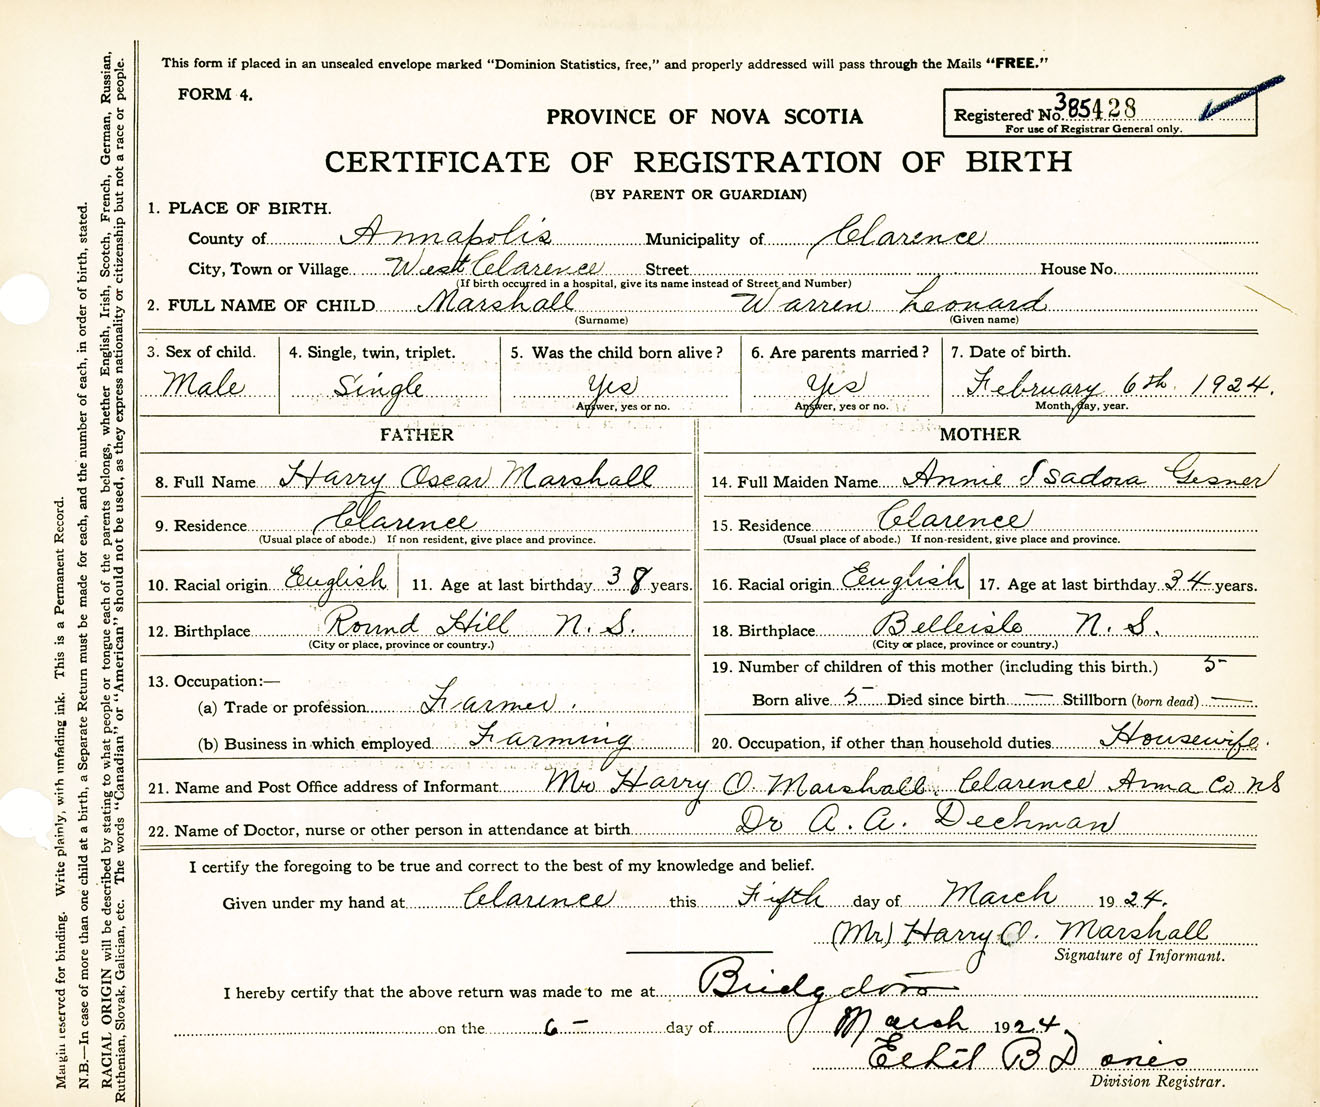 This form if placed in an unsealed envelope marked "Dominion Statistics, free," and properly addressed will pass through the Mails "FREE."
FORM 4.
Registered No. 385428
For use of Registrar General only.
PROVINCE OF NOVA SCOTIA
CERTIFICATE OF REGISTRATION OF BIRTH
(BY PARENT OR GUARDIAN)
1. PLACE OF BIRTH.
County of Annapolis Municipality of Clarence
City, Town or Village West Clarence Street House No.
(If birth occurred in a hospital, give its name instead of Street and Number)
2. FULL NAME OF CHILD Marshall Warren Leonard
(Surname) (Given name)
3. Sex of child. 4. Single, twin, triplet. 5. Was the child born alive? 6. Are parents married? 7. Date of birth.
Male Single Yes Yes February 6th 1924.
Answer, yes or no. Answer, yes or no. Month, day, year.
FATHER MOTHER
8. Full Name Harry Oscar Marshall 14. Full Maiden Name Annie Isadora Gesner
9. Residence Clarence 15. Residence Clarence
(Usual place of abode.) If non resident, give place and province. (Usual place of abode.) If non-resident, give place and province.
10. Racial origin English 11. Age at last birthday 38 years. 16. Racial origin English 17. Age at last birthday 34 years.
12. Birthplace Round Hill N. S. 18. Birthplace Belleisle N. S.
(City or place, province or country.) (City or place, province or country.)
19. Number of children of this mother (including this birth.) 5
13. Occupation:—
Born alive 5 Died since birth — Stillborn (born dead) —
(a) Trade or profession Farmer.
(b) Business in which employed Farming 20. Occupation, if other than household duties Housewife.
21. Name and Post Office address of Informant Mr Harry O. Marshall. Clarence Anna Co NS
22. Name of Doctor, nurse or other person in attendance at birth Dr A. A. Dechman
I certify the foregoing to be true and correct to the best of my knowledge and belief.
Given under my hand at Clarence this Fifth day of March 1924.
(Mr) Harry O. Marshall
Signature of Informant.
I hereby certify that the above return was made to me at
on the 6 - day of March 1924.
B
Division Registrar.
Margin reserved for binding. Write plainly, with unfading ink. This is a Permanent Record.
N.B.—In case of more than one child at a birth, a Separate Return must be made for each, and the number of each, in order of birth, stated.
RACIAL ORIGIN will be described by stating to what people or tongue each of the parents belongs, whether English, Irish, Scotch, French, German, Russian,
Ruthenian, Slovak, Galician, etc. The words "Canadian" or "American" should not be used, as they express nationality or citizenship but not a race or people.